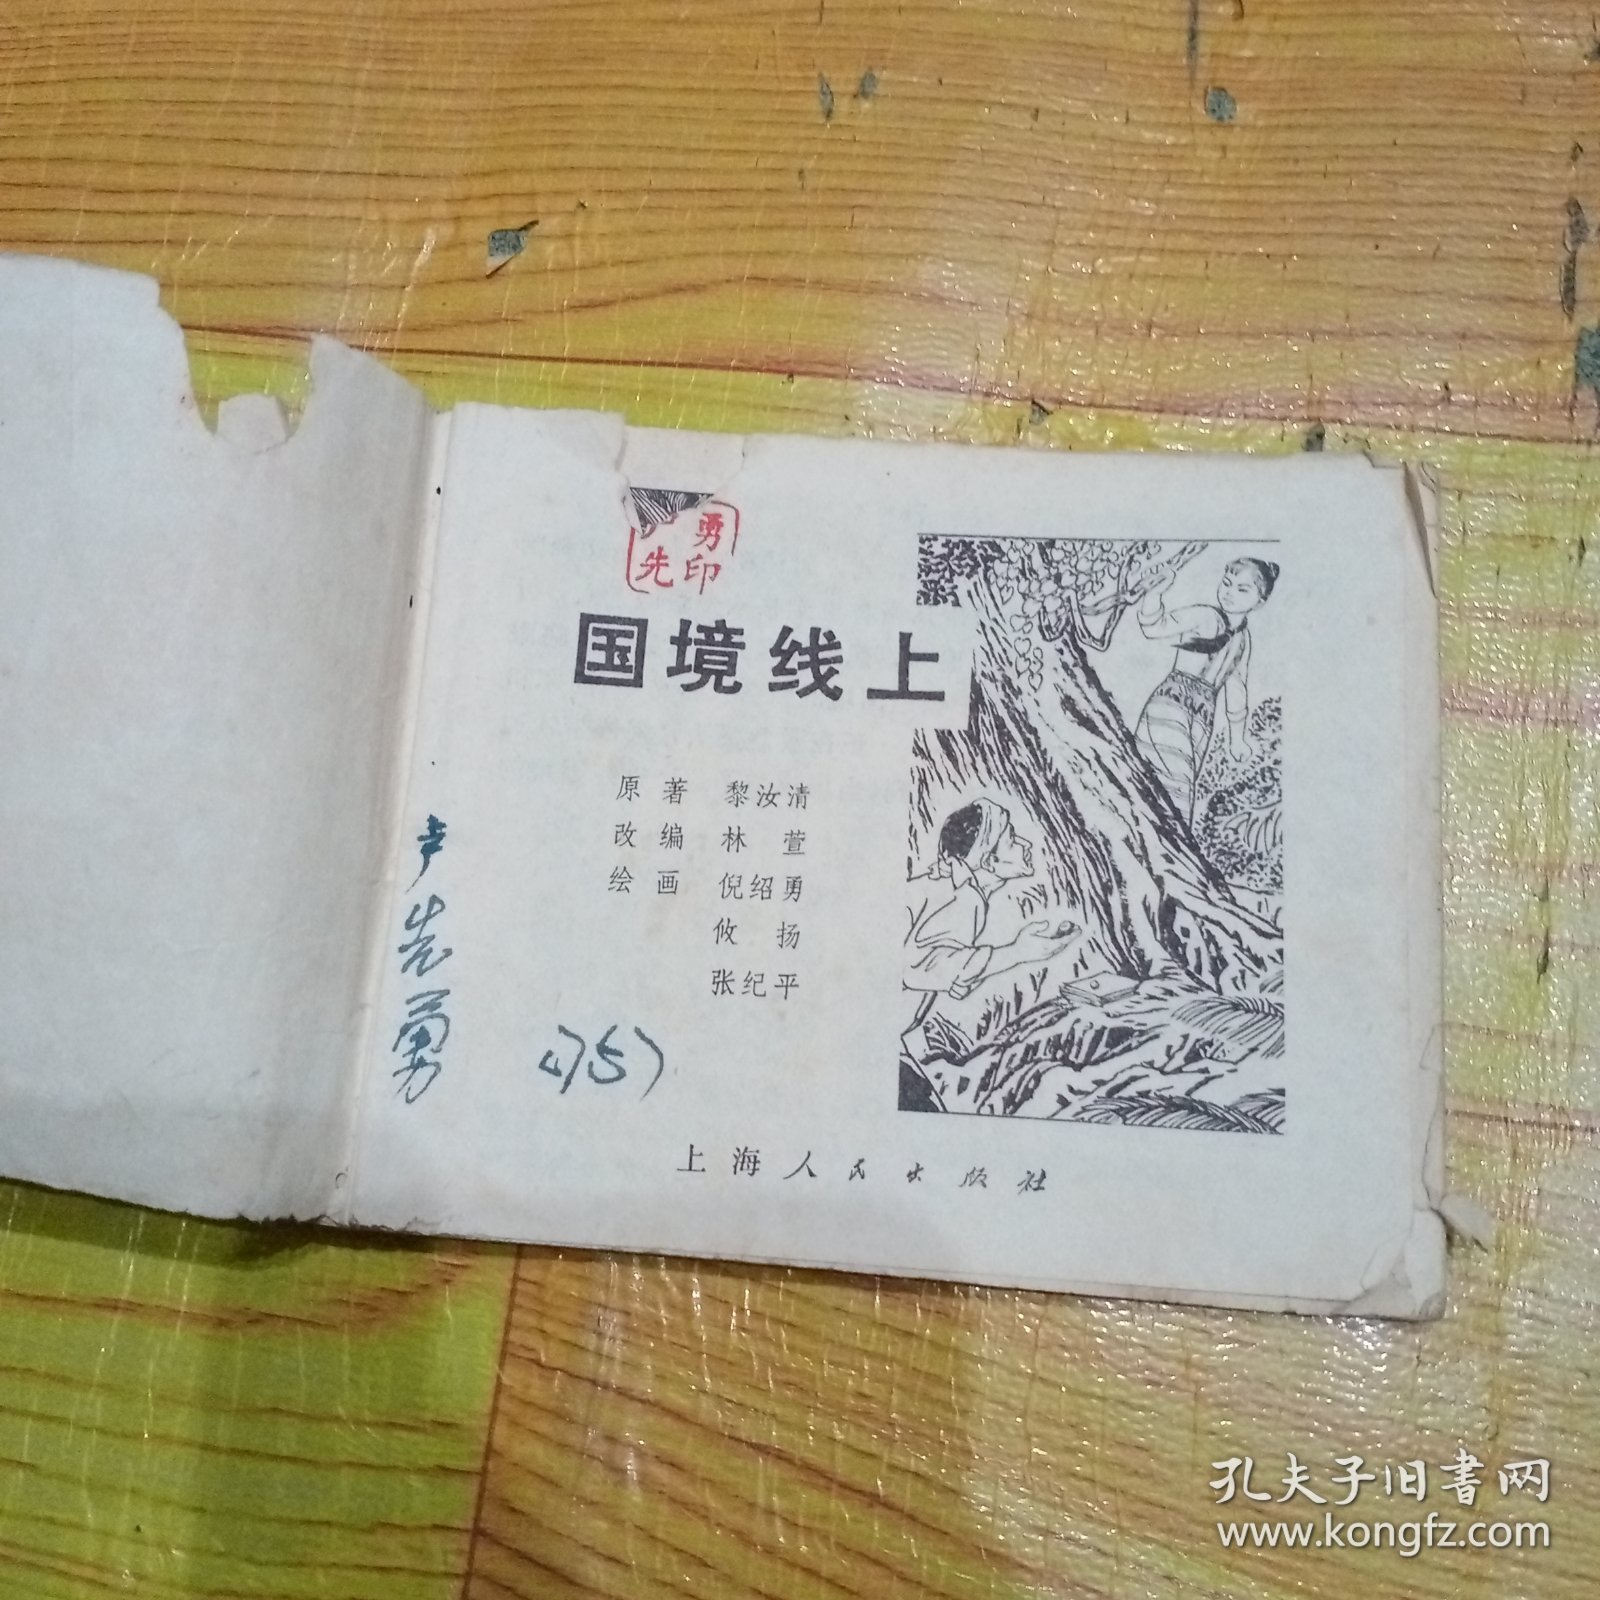 勇
先印
国境线上
原著 黎汝清
改编 林萱
绘画 倪绍勇
攸扬
张纪平
卢先勇
上海人民出版社
孔夫子旧书网
www.kongfz.com